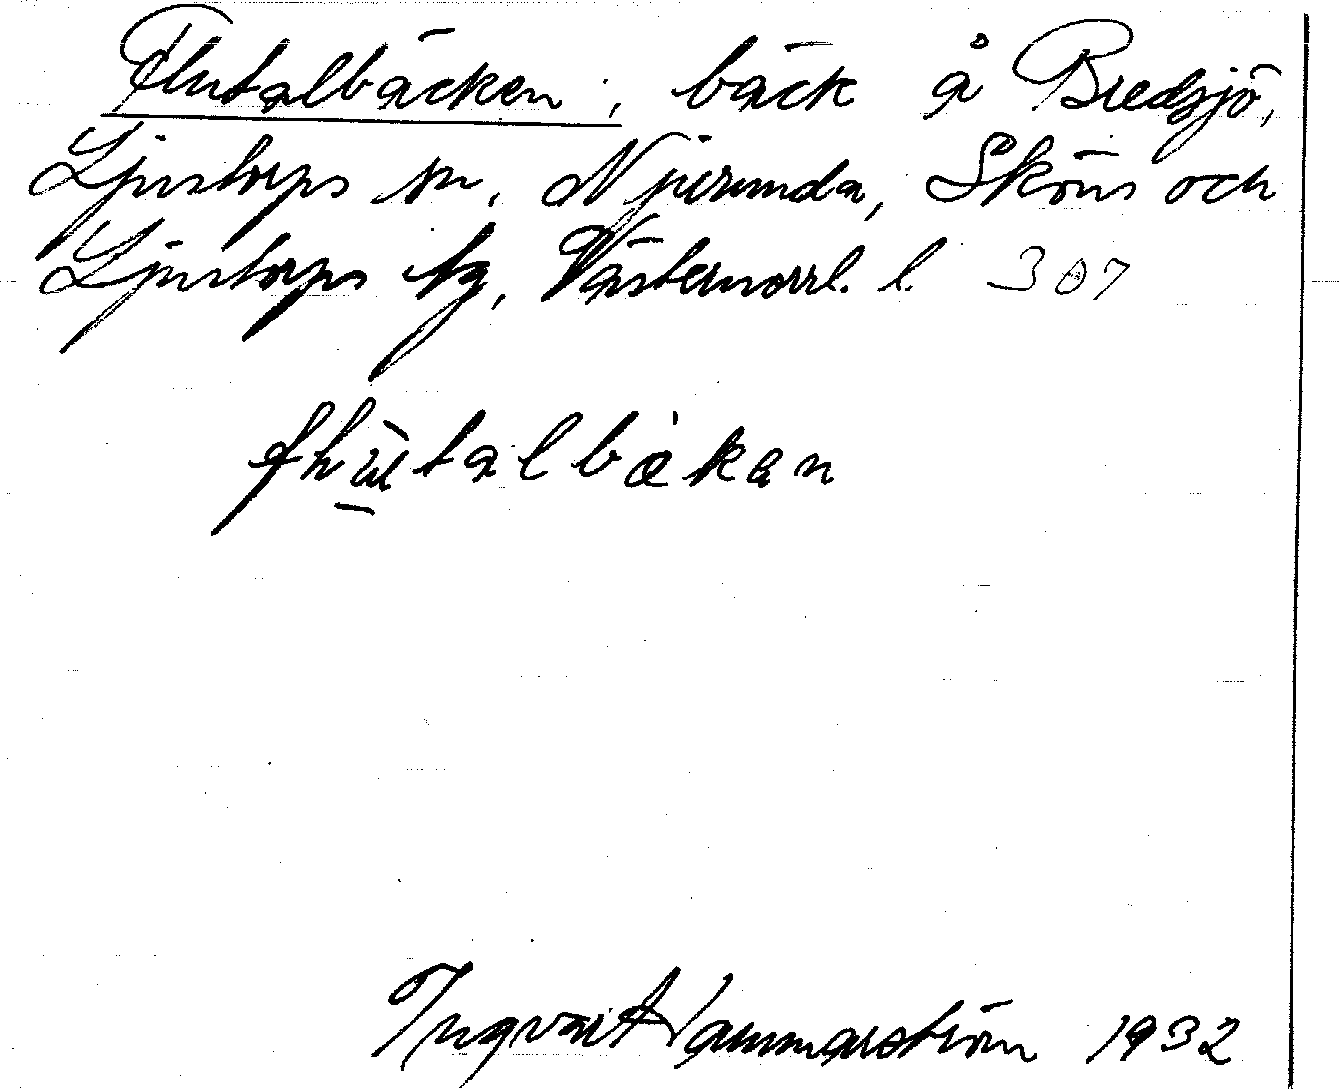 Flutalbäcken, bäck å Bredsjö,
Ljustorps sn, Njurunda, Sköns och
Ljustorps tg, Västernorrl. l. 307
Ingvar Hammarström 1932